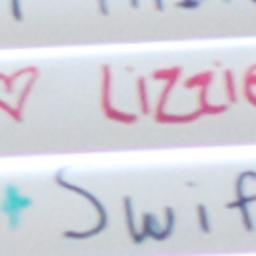 ♡ Lizzie
+ Swif